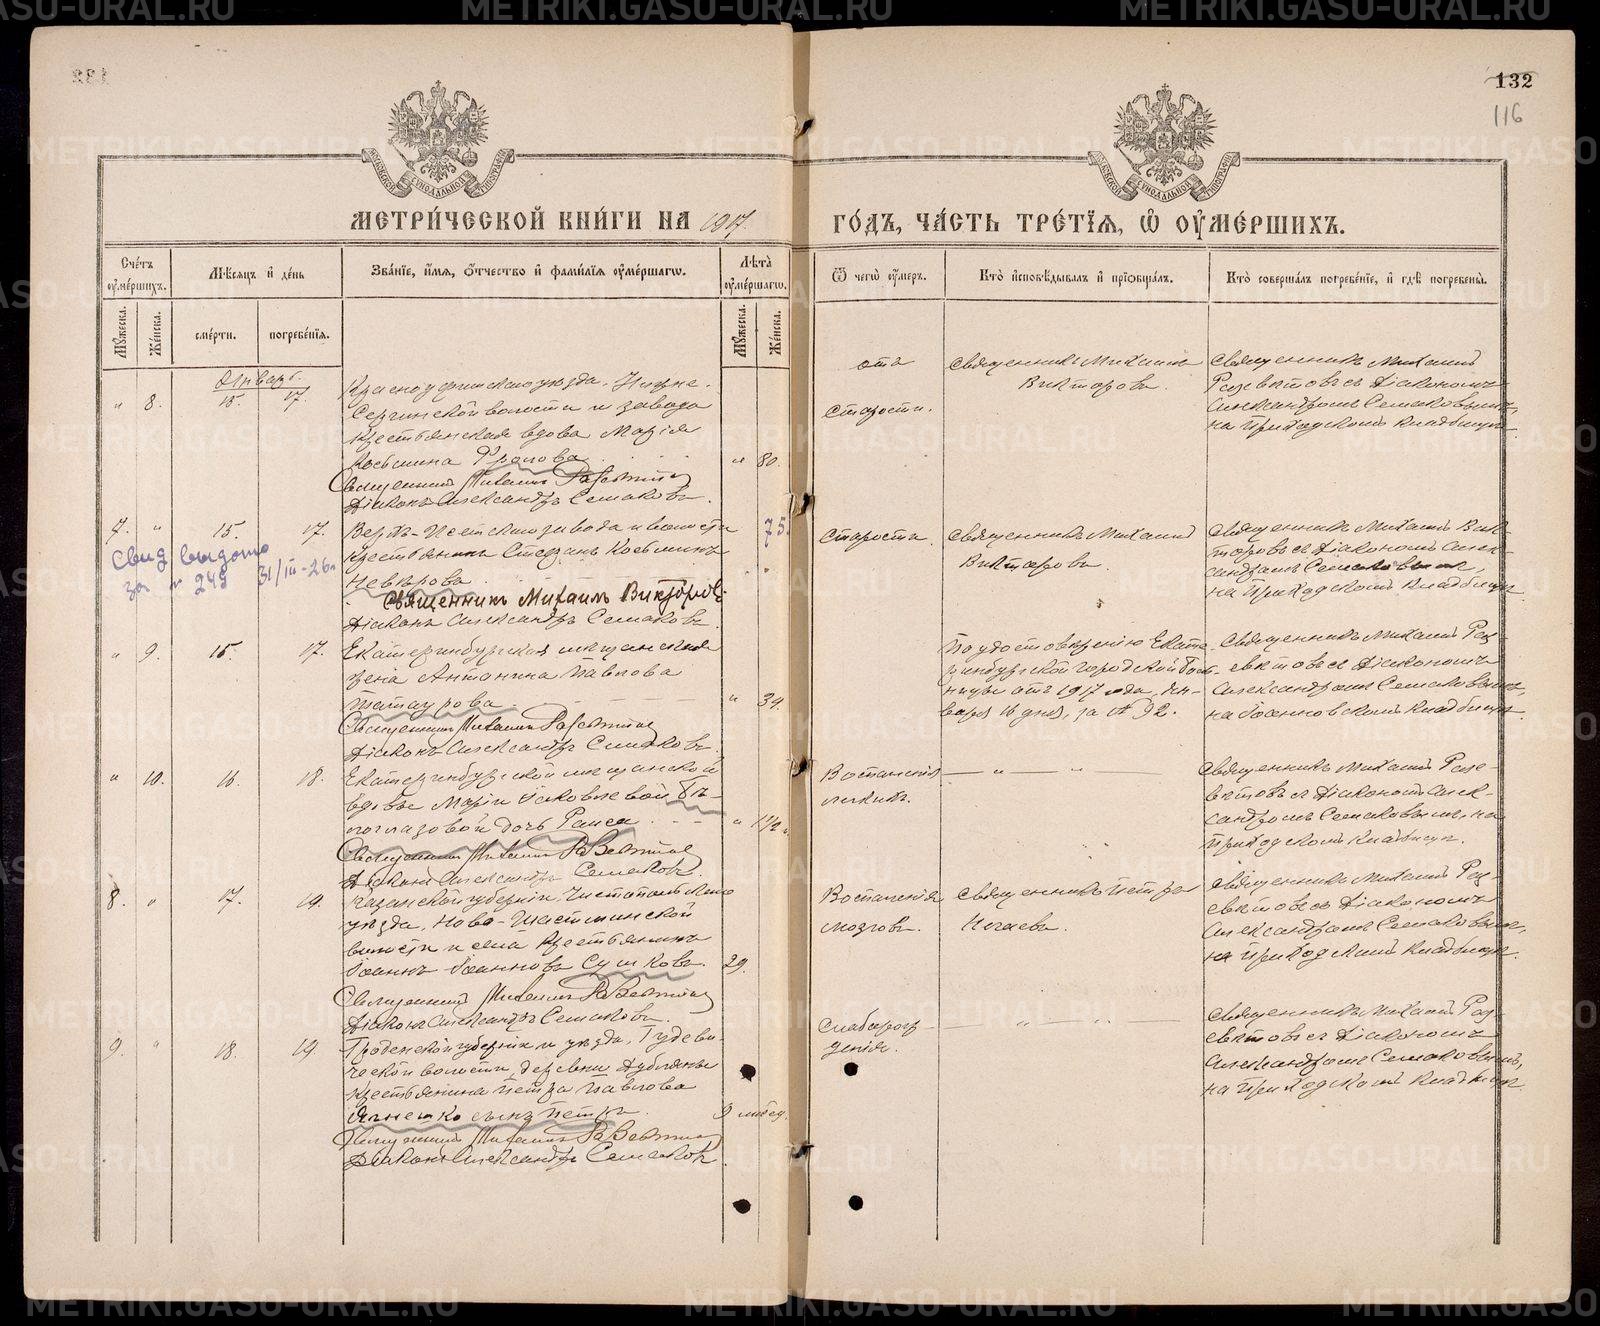 132
116
МОСКОВСКОЙ СѴНОДАЛЬНОЙ ТИПОГРАФІИ
МОСКОВСКОЙ СѴНОДАЛЬНОЙ ТИПОГРАФІИ
МЕТРИ́ЧЕСКОЙ КНИ́ГИ НА 1917.
ГО́ДЪ, ЧА́СТЬ ТРЕ́ТІѦ, Ѽ ОУ҆МЕ́РШИХЪ.
Сче́тъ оу҆ме́ршихъ.
Мѣ́сяцъ и҆ де́нь
Зва́нїе, и҆́мѧ, ѻ҆́тчество и҆ фами́лїѧ оу҆ме́ршагѡ.
Лѣ́та оу҆ме́ршагѡ.
Ѿ чегѡ̀ оу҆́меръ.
Кто̀ и҆сповѣ́дывалъ и҆ прїѡбща́лъ.
Кто̀ соверша́лъ погребе́нїе, и҆ гдѣ̀ погребены̀.
Мꙋ́жеска.
Же́нска.
сме́рти.
погребе́нїѧ.
Мꙋ́жеска.
Же́нска.
Январь.
" 8. 15. 17.
Красноуфимскаго уѣзда, Нижне-
Сергинской волости и завода
крестьянская вдова Марія
Козьмина Фролова " 80.
Священникъ Михаилъ Разсвѣтовъ
Діаконъ Александръ Семаковъ.
отъ
старости.
Священникъ Михаилъ
Викторовъ.
Священникъ Михаилъ
Разсвѣтовъ съ Діакономъ
Александромъ Семаковымъ,
на приходскомъ кладбищѣ.
7. " 15. 17.
Верхъ-Исетскаго завода и волости
крестьянинъ Стефанъ Козьминъ
Невѣровъ 75.
Священникъ Михаилъ Викторовъ
Діаконъ Александръ Семаковъ.
Свид выдано
за № 245 31/III-26г
Старость.
Священникъ Михаилъ
Викторовъ.
Священникъ Михаилъ Вик-
торовъ съ Діакономъ Алек-
сандромъ Семаковымъ,
на приходскомъ кладбищѣ.
" 9. 15. 17.
Екатеринбургская мѣщанская
жена Антонина Павлова
Татаурова " 34.
Священникъ Михаилъ Разсвѣтовъ
Діаконъ Александръ Семаковъ.
По удостовѣренію Екате-
ринбургской городской боль-
ницы отъ 1917 года, Ян-
варя 16 дня, за № 92.
Священникъ Михаилъ Раз-
свѣтовъ съ Діакономъ
Александромъ Семаковымъ,
на Іоанновскомъ кладбищѣ.
" 10. 16. 18.
Екатеринбургской мѣщанской
вдовы Маріи Іаковлевой Бѣ-
логлазовой дочь Раиса " 1 1/2 г.
Священникъ Михаилъ Разсвѣтовъ
Діаконъ Александръ Семаковъ.
Воспаленія
легкихъ.
— " — " —
Священникъ Михаилъ Разс-
вѣтовъ съ Діакономъ Алек-
сандромъ Семаковымъ, на
приходскомъ кладбищѣ.
8. " 17. 19.
Казанской губерніи, Чистопольскаго
уѣзда, Ново-Шастминской
волости и села крестьянинъ
Іоаннъ Іоанновъ Сушковъ. 29.
Священникъ Михаилъ Разсвѣтовъ
Діаконъ Александръ Семаковъ.
Воспаленія
мозговъ.
Священникъ Петръ
Ногаевъ.
Священникъ Михаилъ Раз-
свѣтовъ съ Діакономъ
Александромъ Семаковымъ,
на приходскомъ кладбищѣ.
9. " 18. 19.
Гродненской губерніи и уѣзда, Гудеви-
ческой волости, деревни Дубляны
крестьянина Петра Павлова
сынъ Петръ. 9 мѣсяц.
Священникъ Михаилъ Разсвѣтовъ
Діаконъ Александръ Семаковъ.
Слабарож-
денія.
— " — " —
Священникъ Михаилъ Раз-
свѣтовъ съ Діакономъ
Александромъ Семаковымъ,
на приходскомъ кладбищѣ.
METRIKI.GASO-URAL.RU